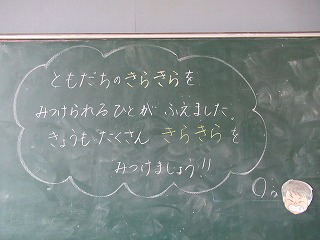 ともだちのきらきらを
みつけられるひとが ふえました。
きょうも たくさん きらきらを
みつけましょう!!